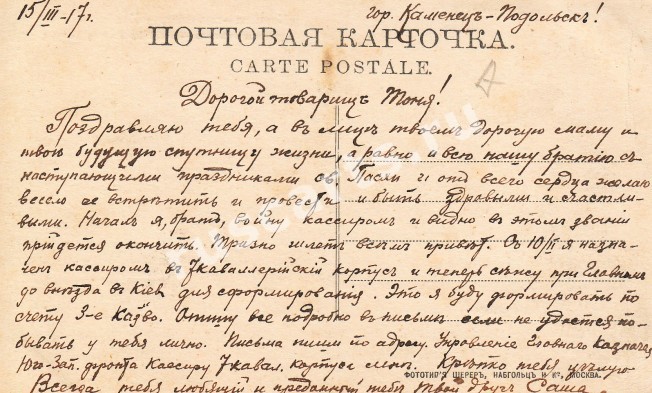 15/III-17г. гор. Каменецъ-Подольскъ!
ПОЧТОВАЯ КАРТОЧКА.
CARTE POSTALE.
Дорогой товарищъ Тоня!
Поздравляю тебя, а въ лицѣ твоемъ дорогую маму и
твою будущую спутницу жизни, а равно и всю нашу братію съ
наступающими праздниками Св. Пасхи и отъ всего сердца желаю
весело ее встрѣтить и провести и быть здравыми и счастли
выми. Началъ я, братъ, войну кассиромъ и видно въ этомъ званіи
придется окончить. шлетъ всѣмъ привѣтъ. Съ 10/II я назна
ченъ кассиромъ въ 7 каваллерійскій корпусъ и теперь при Главномъ
до выѣзда въ Кіевъ для сформированія. Это я буду формировать по
счету 3-е Каз-во. все подробно въ письмѣ если не удастся по
бывать у тебя лично. Письма пиши по адресу. Управленіе Главнаго казначея
Юго-Зап. фронта Кассиру 7 кавал. корпуса мнѣ. Крѣпко тебя цѣлую
ФОТОТИПІЯ ШЕРЕРЪ, НАБГОЛЬЦЪ И Кº, МОСКВА.
Всегда тебя любящій и преданный тебѣ твой другъ Саша